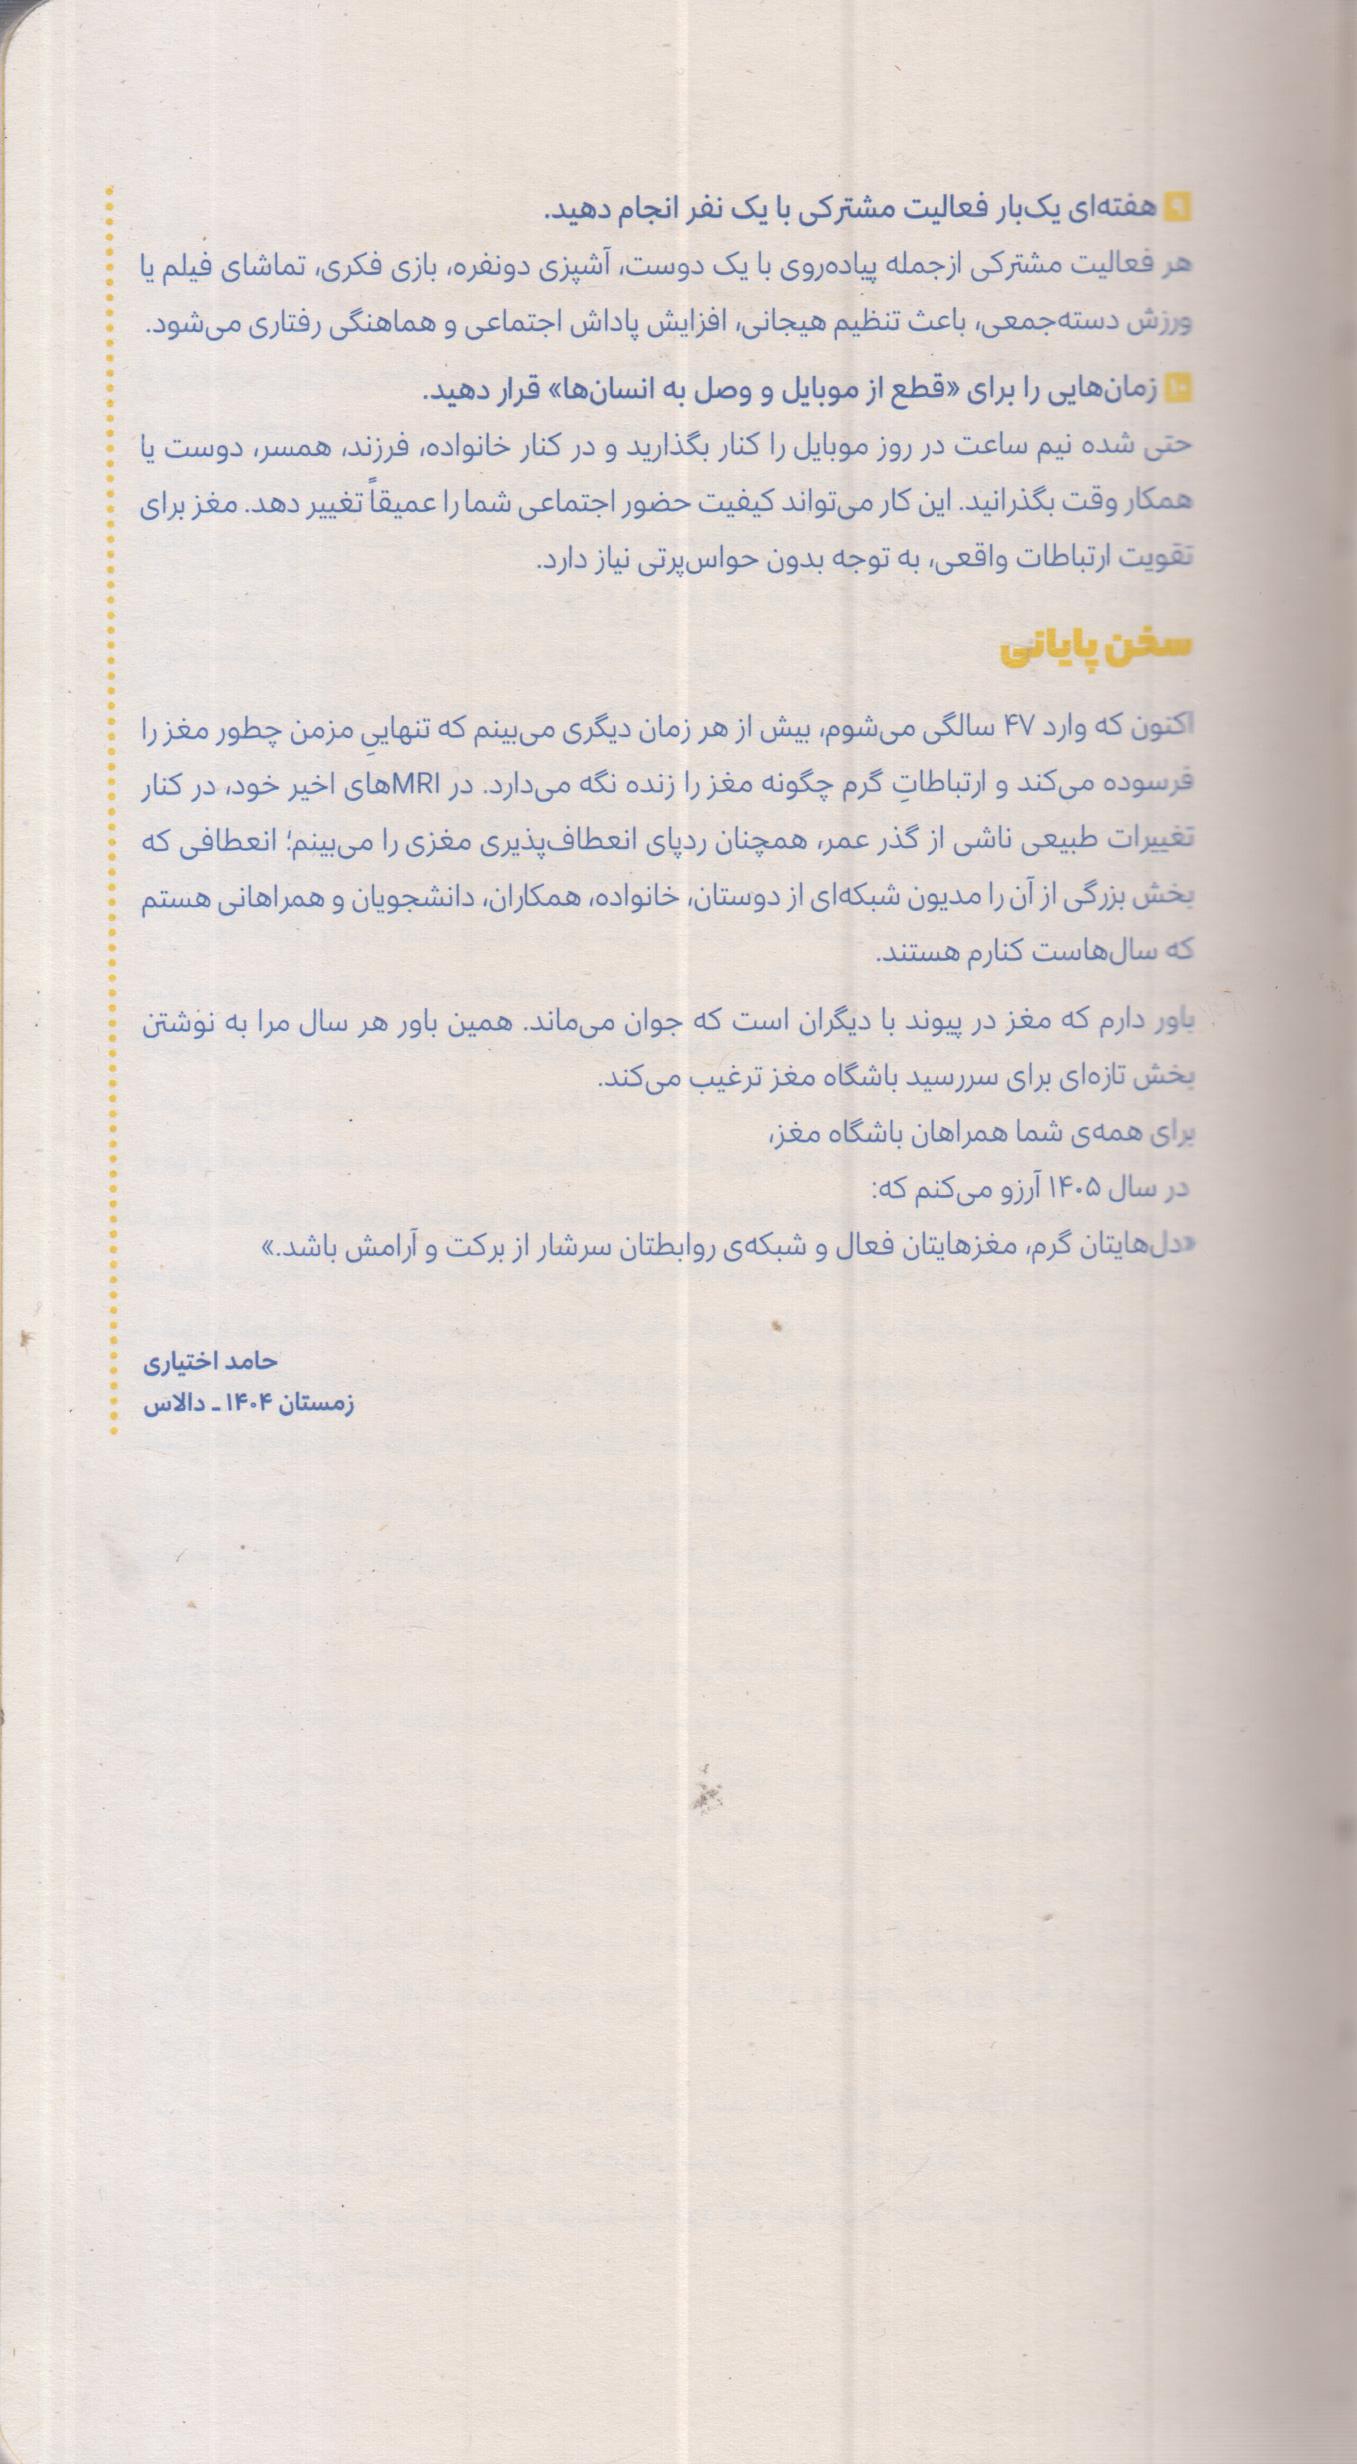 ۹ هفته‌ای یک‌بار فعالیت مشترکی با یک نفر انجام دهید.
هر فعالیت مشترکی ازجمله پیاده‌روی با یک دوست، آشپزی دونفره، بازی فکری، تماشای فیلم یا
ورزش دسته‌جمعی، باعث تنظیم هیجانی، افزایش پاداش اجتماعی و هماهنگی رفتاری می‌شود.
۱۰ زمان‌هایی را برای «قطع از موبایل و وصل به انسان‌ها» قرار دهید.
حتی شده نیم ساعت در روز موبایل را کنار بگذارید و در کنار خانواده، فرزند، همسر، دوست یا
همکار وقت بگذرانید. این کار می‌تواند کیفیت حضور اجتماعی شما را عمیقاً تغییر دهد. مغز برای
تقویت ارتباطات واقعی، به توجه بدون حواس‌پرتی نیاز دارد.
سخن پایانی
اکنون که وارد ۴۷ سالگی می‌شوم، بیش از هر زمان دیگری می‌بینم که تنهاییِ مزمن چطور مغز را
فرسوده می‌کند و ارتباطاتِ گرم چگونه مغز را زنده نگه می‌دارد. در MRIهای اخیر خود، در کنار
تغییرات طبیعی ناشی از گذر عمر، همچنان ردپای انعطاف‌پذیری مغزی را می‌بینم؛ انعطافی که
بخش بزرگی از آن را مدیون شبکه‌ای از دوستان، خانواده، همکاران، دانشجویان و همراهانی هستم
که سال‌هاست کنارم هستند.
باور دارم که مغز در پیوند با دیگران است که جوان می‌ماند. همین باور هر سال مرا به نوشتن
بخش تازه‌ای برای سررسید باشگاه مغز ترغیب می‌کند.
برای همه‌ی شما همراهان باشگاه مغز،
در سال ۱۴۰۵ آرزو می‌کنم که:
«دل‌هایتان گرم، مغزهایتان فعال و شبکه‌ی روابطتان سرشار از برکت و آرامش باشد.»
حامد اختیاری
زمستان ۱۴۰۴ ـ دالاس